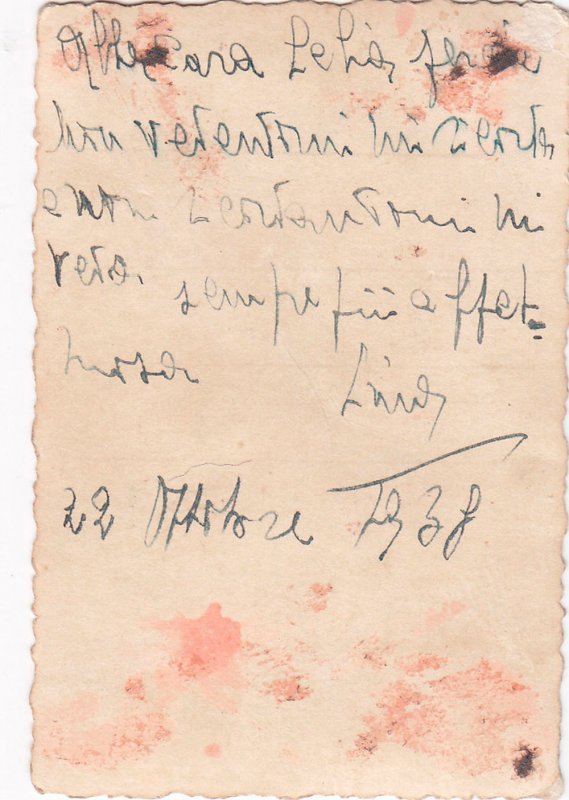 Alla cara Lelia, perchè
non vedendomi mi ricordi
e non ricordandomi mi
veda. sempre più affet-
tuosa Lina
22 Ottobre 1938